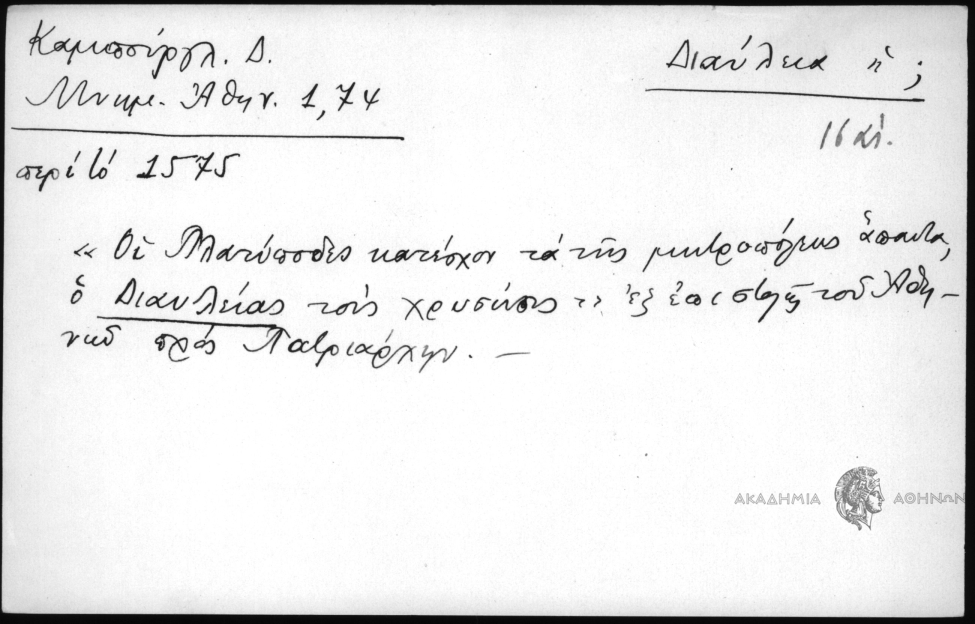 Καμπούργλ. Δ.
Μνημ. Ἀθην. 1,74
Διαύλεια ἡ ;
16 αἰ.
περί τό 1575
« Οἱ Πλατύποδες κατέσχον τά τῆς μητροπόλεως ἅπαντα,
ὁ Διαυλείας τούς χρυσώπις ἐξ ἐπιστολῆς τοῦ Ἀθη-
ναίου πρός Πατριάρχην. —
ΑΚΑΔΗΜΙΑ ΑΘΗΝΩΝ